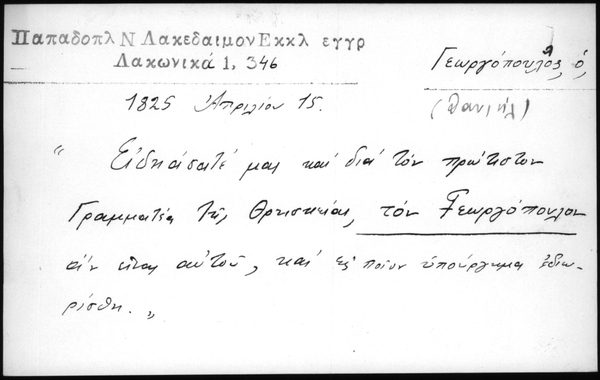 Παπαδοπλ Ν Λακεδαιμον Εκκλ εγγρ
Λακωνικά 1, 346
Γεωργόπουλος, ό,
(Δανιήλ)
1825 Ἀπριλίου 15.
„ Εἰδηάσατέ μας καὶ διὰ τὸν πρώτιστον
Γραμματέα τῆς Θρησκείας, τὸν Γεωργόπουλον
ἀν εἶναι αὐτοῦ, καὶ εἰς ποῖον ὑπούργημα ἐδιω-
ρίσθη. „